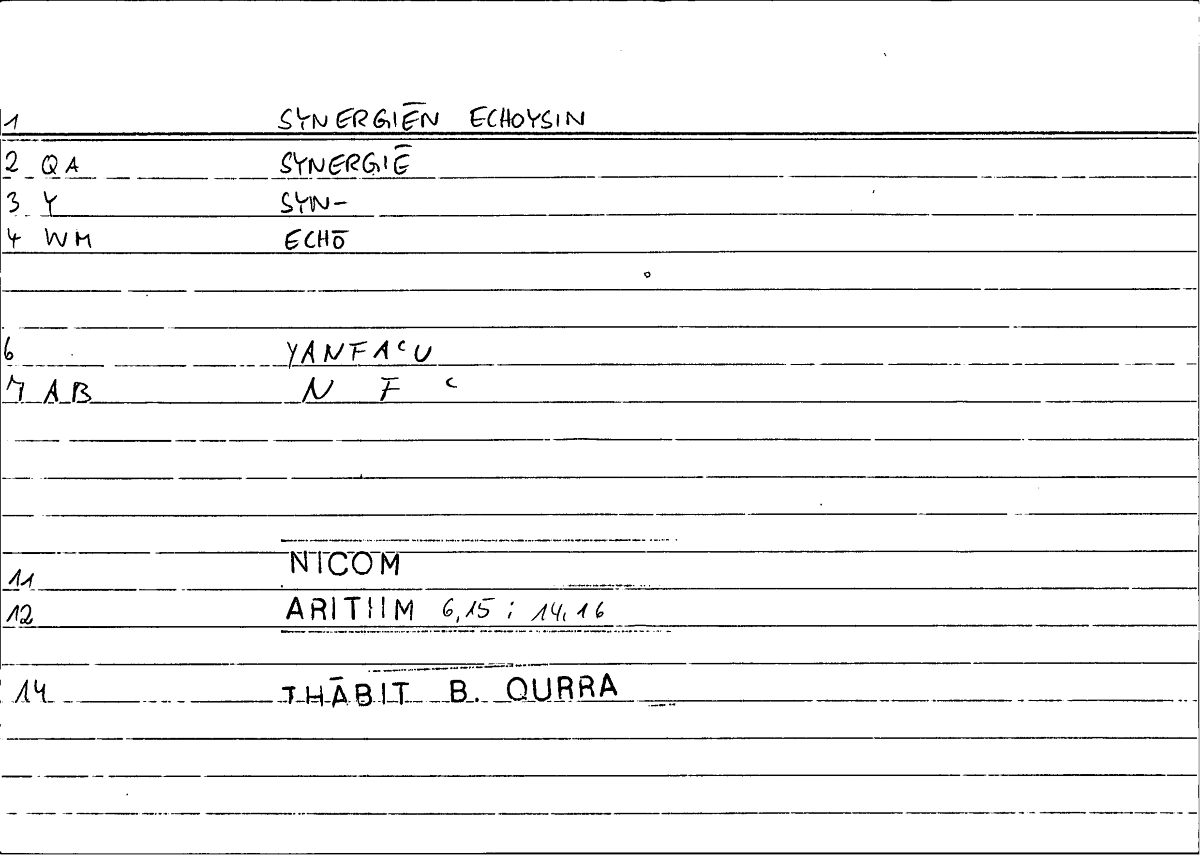 1 SYNERGIĒN ECHOYSIN
2 QA SYNERGIĒ
3 Y SYN-
4 WM ECHŌ
6 YANFAʿU
7 AB N F ʿ
NICOM
11
12 ARITHM 6,15 ; 14,16
14 THĀBIT B. QURRA